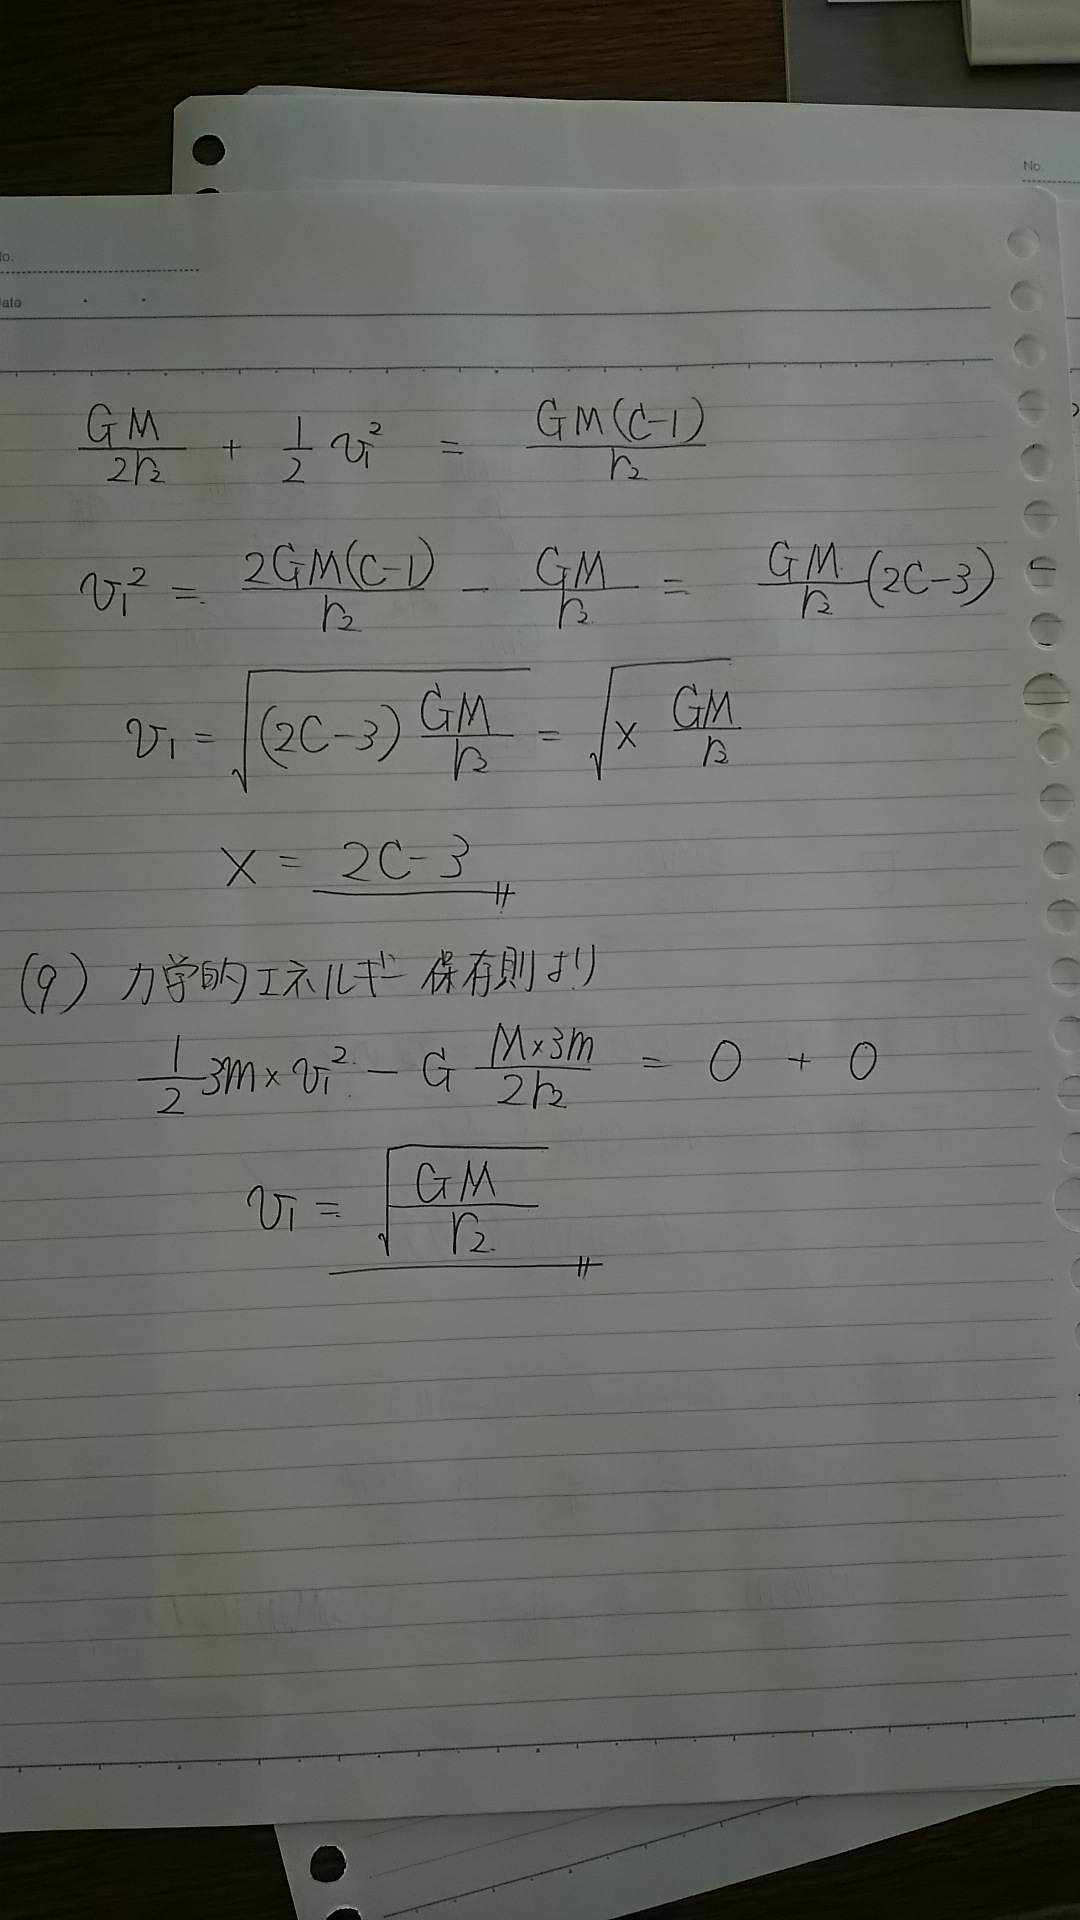 No.
No.
Data
GM/2r₂ + 1/2 v₁² = GM(C-1)/r₂
v₁² = 2GM(C-1)/r₂ - GM/r₂ = GM/r₂ (2C-3)
v₁ = √((2C-3) GM/r₂) = √(x GM/r₂)
x = 2C-3
(9) 力学的エネルギー保存則より
1/2 3m × v₁² - G M×3m/2r₂ = 0 + 0
v₁ = √(GM/r₂)